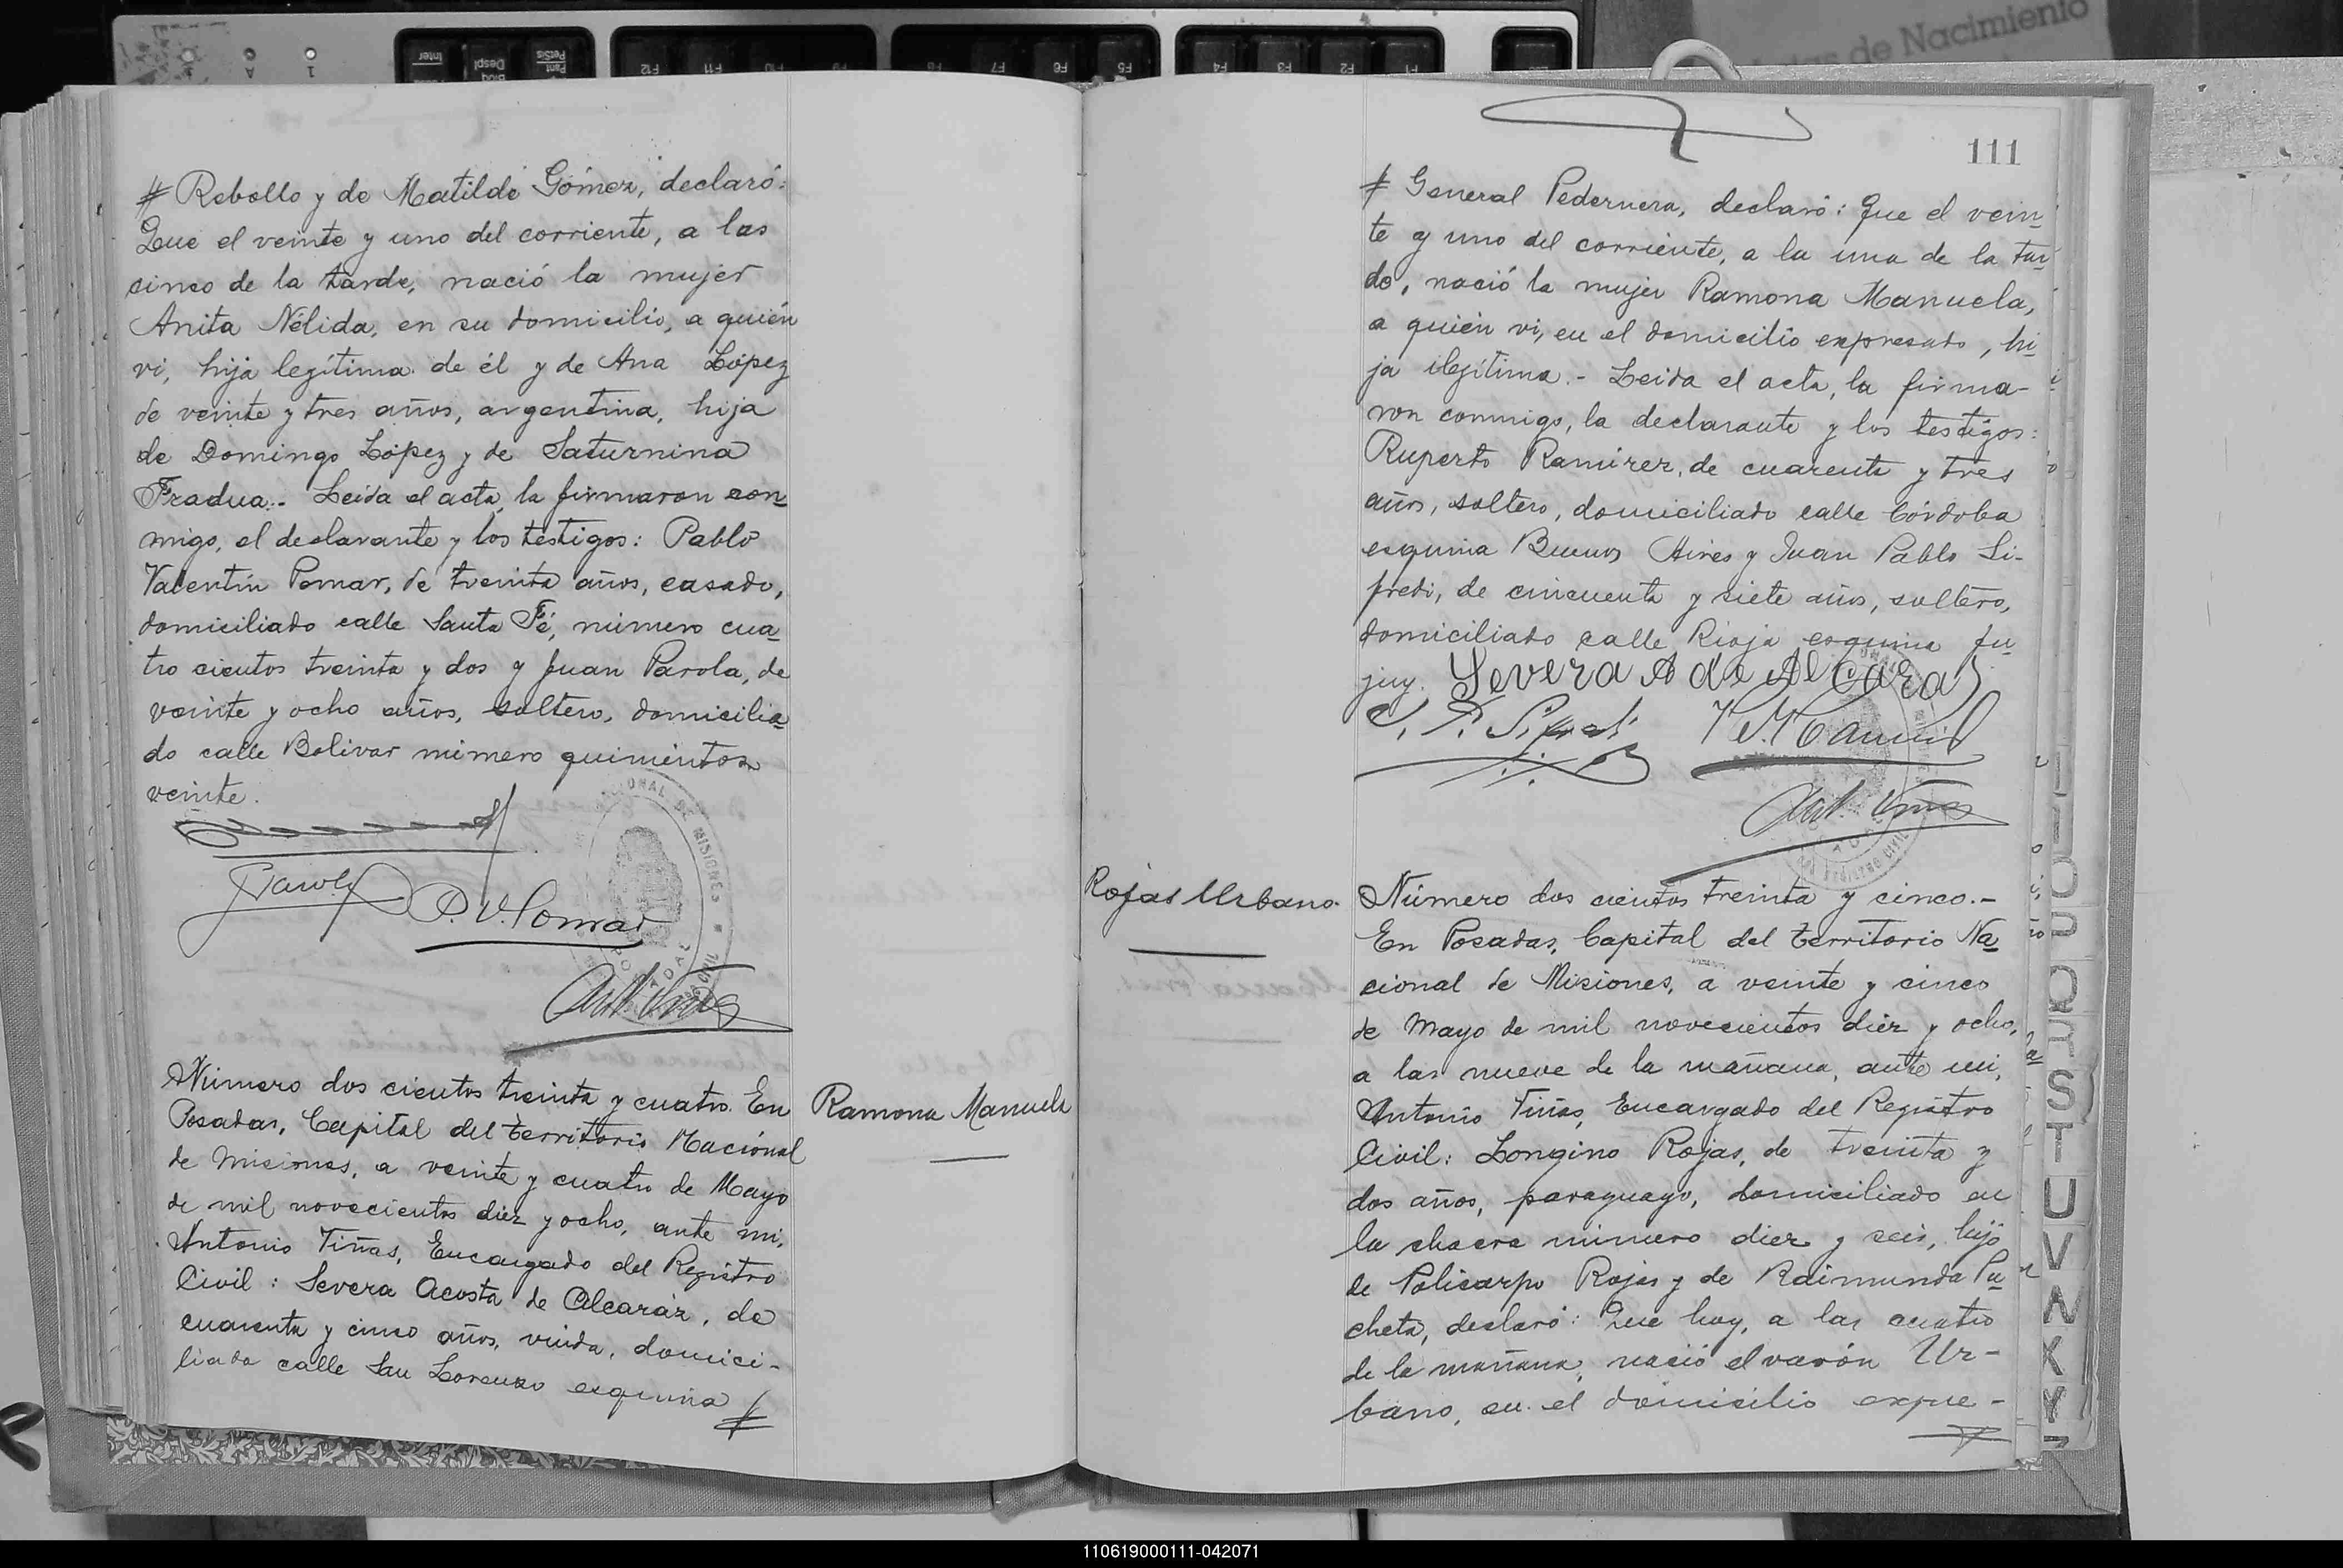 de Nacimiento
Inter
Despl
Bloq
PetSis
Pant
F12
F11
F10
F9
F8
F7
F6
F5
F4
F3
F2
F1
# Rebollo y de Matilde Gómez, declaró:
Que el veinte y uno del corriente, a las
cinco de la tarde, nació la mujer
Anita Nélida, en su domicilio, a quién
vi, hija legítima de él y de Ana López
de veinte y tres años, argentina, hija
de Domingo López y de Saturnina
Fradua.- Leida el acta, la firmaron con
migo, el declarante y los testigos: Pablo
Valentín Pomar, de treinta años, casado,
domiciliado calle Santa Fé, número cua
tro cientos treinta y dos y Juan Parola, de
veinte y ocho años, soltero, domicilia
do calle Bolivar número quinientos
veinte.
P. V. Pomar
Número dos cientos treinta y cuatro. En
Posadas, Capital del territorio Nacional
de Misiones, a veinte y cuatro de Mayo
de mil novecientos diez y ocho, ante mi,
Antonio Tiñas, Encargado del Registro
Civil: Severa Acosta de Alcaráz, de
cuarenta y cinco años, viuda, domici-
liada calle San Lorenzo esquina #
Ramona Manuela
111
# General Pedernera, declaró: Que el vein
te y uno del corriente, a la una de la tar
de, nació la mujer Ramona Manuela,
a quién vi, en el domicilio expresado, hi
ja ilegítima.- Leida el acta, la firma-
ron conmigo, la declarante y los testigos:
Ruperto Ramírez, de cuarenta y tres
años, soltero, domiciliado calle Córdoba
esquina Buenos Aires y Juan Pablo Si-
fredi, de cincuenta y siete años, soltero,
domiciliado calle Rioja esquina Ju
juy. Severa A de Alcaraz
Rojas Urbano.
Número dos cientos treinta y cinco.-
En Posadas, Capital del territorio Na
cional de Misiones, a veinte y cinco
de Mayo de mil novecientos diez y ocho,
a las nueve de la mañana, ante mi,
Antonio Tiñas, Encargado del Registro
Civil: Longino Rojas, de treinta y
dos años, paraguayo, domiciliado en
la chacra número diez y seis, hijo
de Policarpo Rojas y de Raimunda Pu
cheta, declaró: Que hoy, a las cuatro
de la mañana, nació el varón Ur-
bano, en el domicilio expre-
O
P
Q
R
S
T
U
V
W
K
Y
Z
110619000111-042071